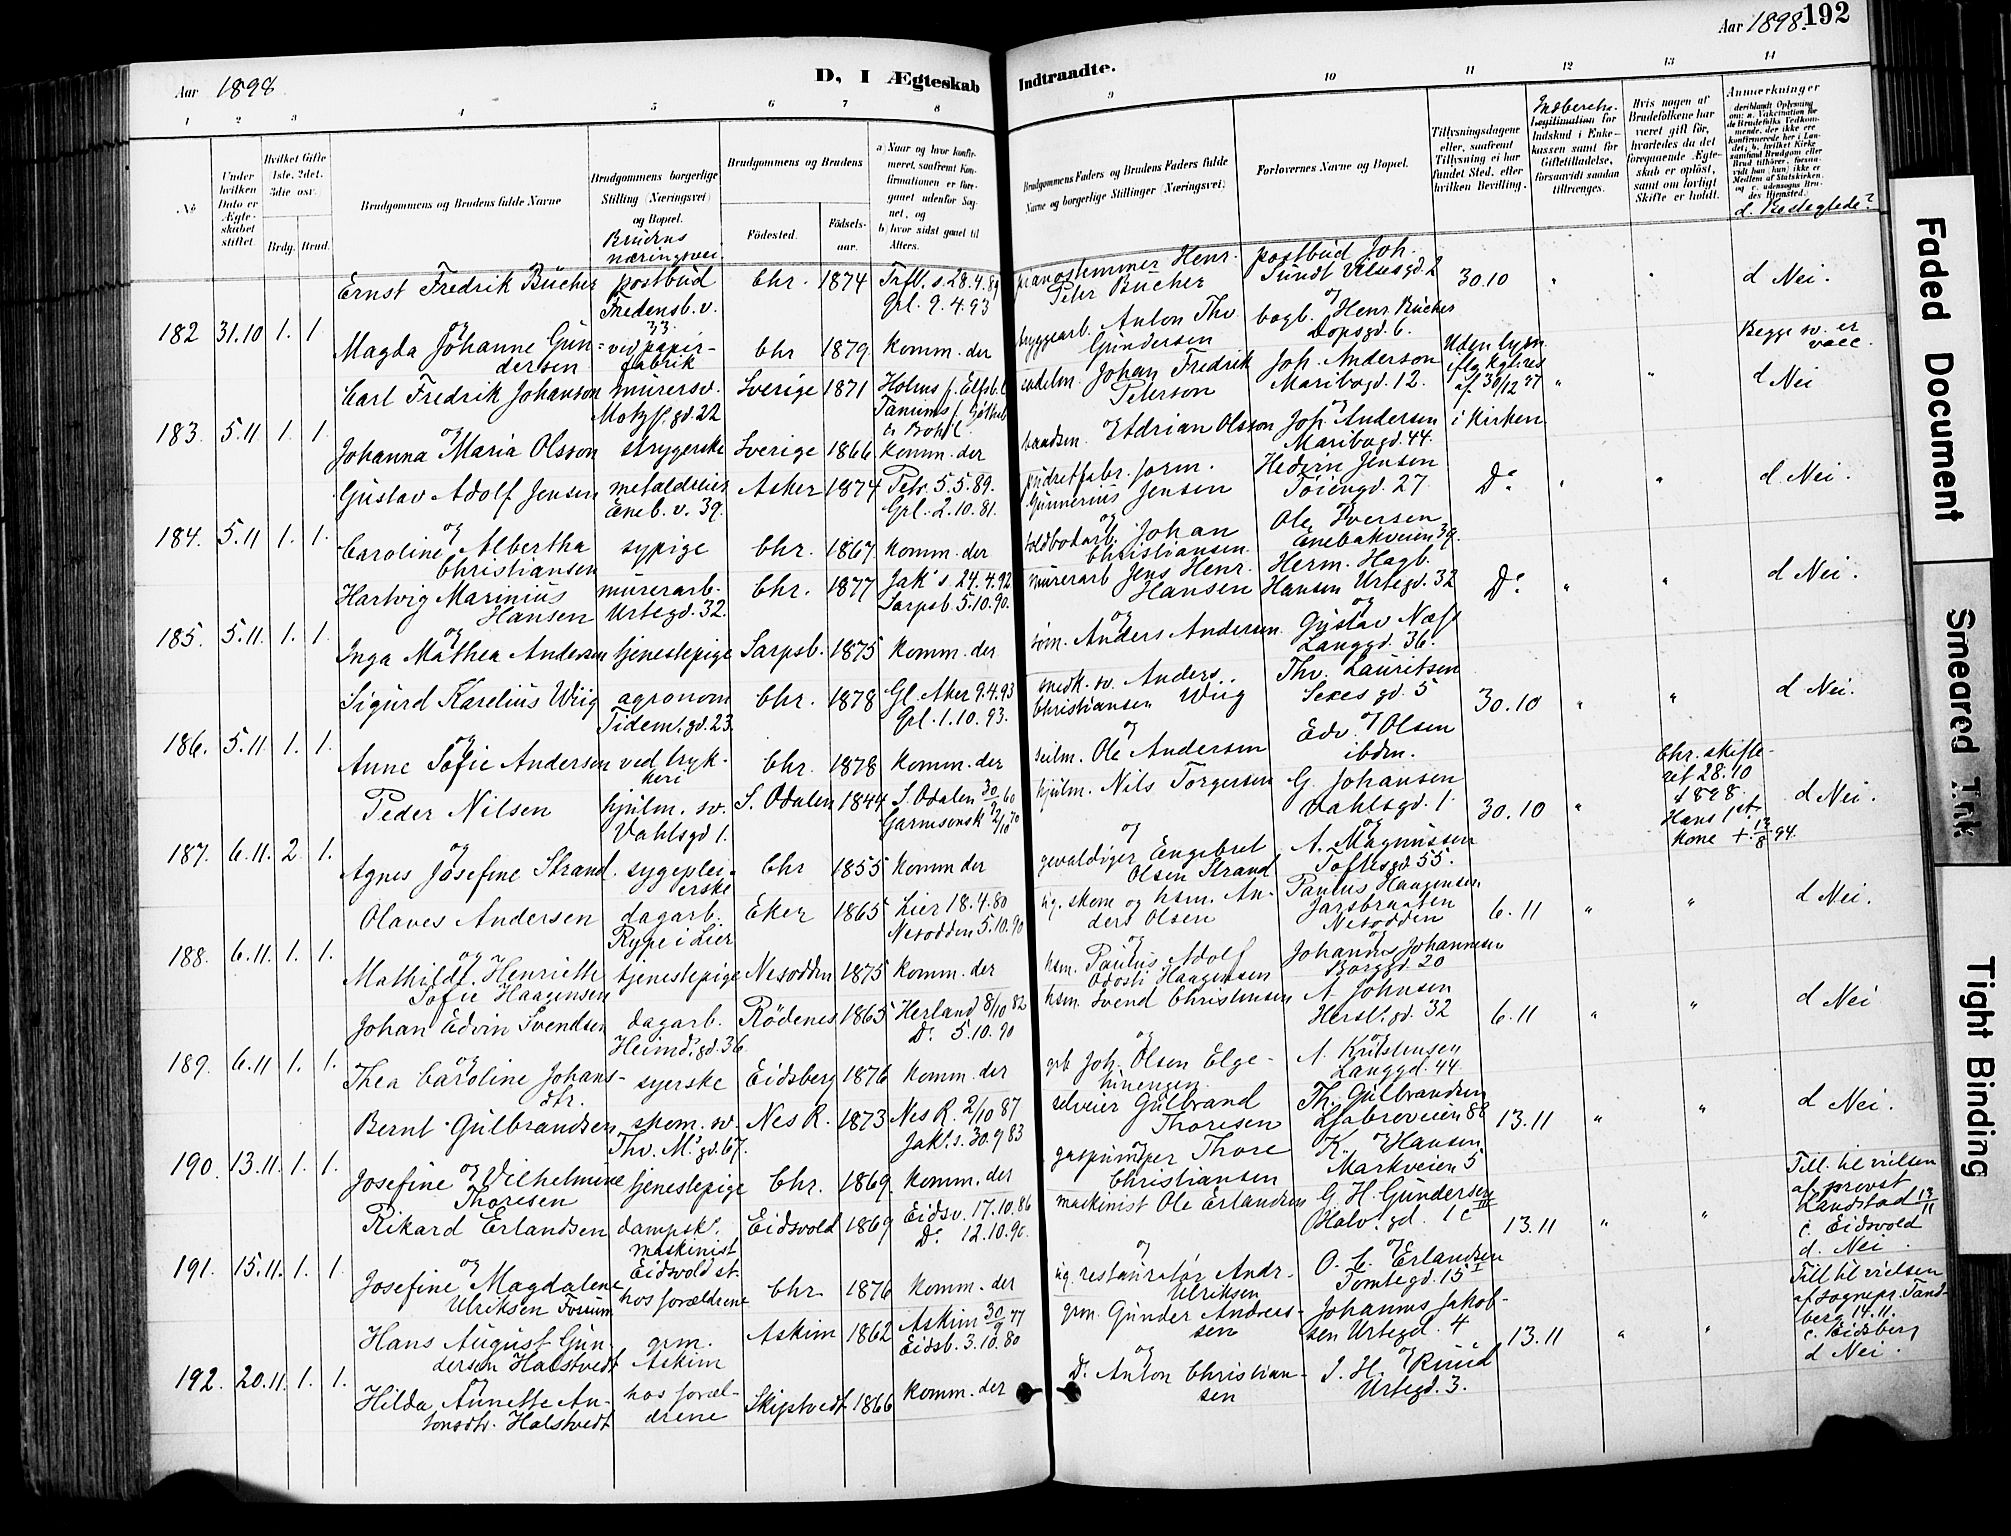 Aar 1898
D, I Ægteskab Indtraadte.
Aar 1898. 192
1 2 3 4 5 6 7 8 9 10 11 12 13 14
No
Under hvilken Dato er Ægteskabet stiftet.
Hvilket Gifte (1ste, 2det, 3die osv.
Brdg. Brud.
Brudgommens og Brudens fulde Navne
Brudgommens borgerlige Stilling (Næringsvei) og Bopæl.
Brudens næringsvei
Brudgommens og Brudens
Födested. Födselsaar.
a) Naar og hvor konfirmeret, saafremt Konfirmationen er foregaaet udenfor Sognet, og
b) hvor sidst gaaet til Alters.
Brudgommens Faders og Brudens Faders fulde Navne og borgerlige Stillinger (Næringsvei)
Forlovernes Navne og Bopæl.
Tillysningsdagene eller, saafremt Tillysning ei har fundet Sted, efter hvilken Bevilling.
Legitimation for Indskud i Enkekassen samt for Giftetilladelse, forsaavidt saadan tiltrænges.
Hvis nogen af Brudefolkene har været gift før, hvorledes da det foregaaende Ægteskab er opløst, samt om lovligt Skifte er holdt.
Anmærkninger
d. Beslegtede?
182 31.10 1. 1
Ernst Fredrik Bücher postbud Fredensb. v. 33. Chr. 1874 Trfl. s. 28.4.89 Grl. 9.4.93
pianostemmer Henr. Peter Bücher postbud Joh. Sundt 30.10 " " d Nei.
og
Magda Johanne Gundersen ved papirfabrik Chr 1879. komm. der
bryggearb. Anton Thv. Gundersen bogb. Henr Bücher Dopsgd. 6.
Begge sv. er vacc.
183. 5.11 1. 1.
Carl Fredrik Johanson murersv. Motzf. gd. 22 Sverige 1871
sadelm. Johan Fredrik Peterson Joh. Anderson Maribogd. 12. Uden lysn. iflg kgl. res af 30/12 27 " " d Nei
og
Johanna Maria Olsson strygerske Sverige 1866 komm. der
Adrian Olsson Joh. Andersen Maribogd. 44. i Kirken
184. 5.11 1. 1.
Gustav Adolf Jensen metaldreier Eneb. v. 39. Asker 1874 Petr. 5.5.89. Grl. 2.10.81.
Gunnerius Jensen Jensen Töiengd. 27. Do " " d Nei.
og
Caroline Albertha Christiansen sypige Chr. 1867 komm. der
Johan Christiansen. Ole Iversen Enebakveien 39.
185. 5.11. 1. 1.
Hartvig Marinius Hansen murerarb. Urtegd. 32. Chr. 1877 Jak's. 24.4.92 Sarpsb. 5.10.90.
murerarb Jens Henr. Hansen Herm. Hagb. Hansen Urtegd. 32 Do " " d Nei.
og
Inga Mathea Andersen tjenestepige Sarpsb. 1875 komm. der
tøm. Anders Andersen Gustav Næss Langgd. 36.
186. 5.11 1. 1.
Sigurd Karelius Wiig agronom Tidem. gd. 23. Chr. 1878 Gl. Aker 9.4.93 Grl. 1.10.93.
snedk. sv. Anders Christiansen Wiig Thv. Lauritsen gd. 5 30.10 " " d Nei.
og
Anne Sofie Andersen ved trykkeri Chr. 1878 komm. der
seilm. Ole Andersen Edv. Olsen ibdm.
187. 6.11. 2. 1.
Peder Nilsen hjulm. sv. Vahlsgd 1. S. Odalen 1844 S. Odalen 30/9 60
hjulm. Nils Torgersen G. Johansen Vahlsgd. 1. 30.10 " Chr. skifteret 28.10 1898. Hans 1st kone + 13/8 94. d Nei.
og
Agnes Josefine Strand sygepleierske Chr 1855 komm der
gevaldiger Engebret Olsen Strand A. Magnussen Toftesgd 55.
188. 6.11. 1. 1.
Olaves Andersen dagarb. Rype i Lier Eker 1865 Lier 18.4.80 Nesodden 5.10.90
skom og hsm. Anders Olsen Paulus Haagensen Jarsbraaten Nesodden 6.11 " " d Nei.
og
Mathilde Henriette Sofie Haagensen tjenestepige Nesodden 1875 komm. der
hsm. Paulus Adolf Haagensen Johannes Johannesen Borggd. 20
189. 6.11 1. 1.
Johan Edvin Svendsen dagarb. Heimd. gd. 36. Rödenes 1865 Herland 8/10 82 Do 5.10.90
hsm. Svend Christensen A. Johnsen Hersl. gd. 32 6.11 " " d Nei
og
Thea Caroline Johansdtr. syerske Eidsberg 1876 komm. der
grb Joh. Olsen A. Kristensen Langgd. 44.
190. 13.11. 1. 1.
Bernt Gulbrandsen skom. sv. Thv. M. gd. 67. Nes R. 1873 Nes R. 2/10 87 Jak. s. 30.9 83
selveier Gulbrand Thoresen Th. Gulbrandsen Ljabroveien 88 13.11 " " d Nei.
og
Josefine Vilhelmine Thoresen tjenestepige Chr. 1869. komm. der
Thore Christiansen K. Hansen Markveien 5
191. 15.11. 1. 1
Rikard Erlandsen dampsk. maskinist Eidsvold st. Eidsvold 1869 Eidsv. 17.10.86 Do 12.10.90.
maskinist Ole Erlandsen G. H. Gundersen Halv. gd. 1 c III 13.11 " " Till. til vielsen af provst Landstad 13/11 c. Eidsvold d. Nei.
og
Josefine Magdalene Ulriksen Fossum hos forældrene Chr. 1876 komm. der
restauratør Andr. Ulriksen O. C. Erlandsen Tomtegd. 15 I
192. 20.11. 1. 1.
Hans August Gundersen Halstvedt grm. Askim Askim 1862 Askim 30/9 77 Eidsb. 3.10.80
grm. Gunder Anderssen Johannes Jakobsen Urtegd. 4 13.11 " " Till til vielsen af sognepr. Tandberg 14.11. c. Eidsberg d Nei.
og
Hilda Annette Antonsdtr. Halstvedt hos forældrene Skiptvedt 1866 komm. der
Do Anton Christiansen J. H. Ruud Urtegd. 3.
Faded Document
Smeared Ink
Tight Binding